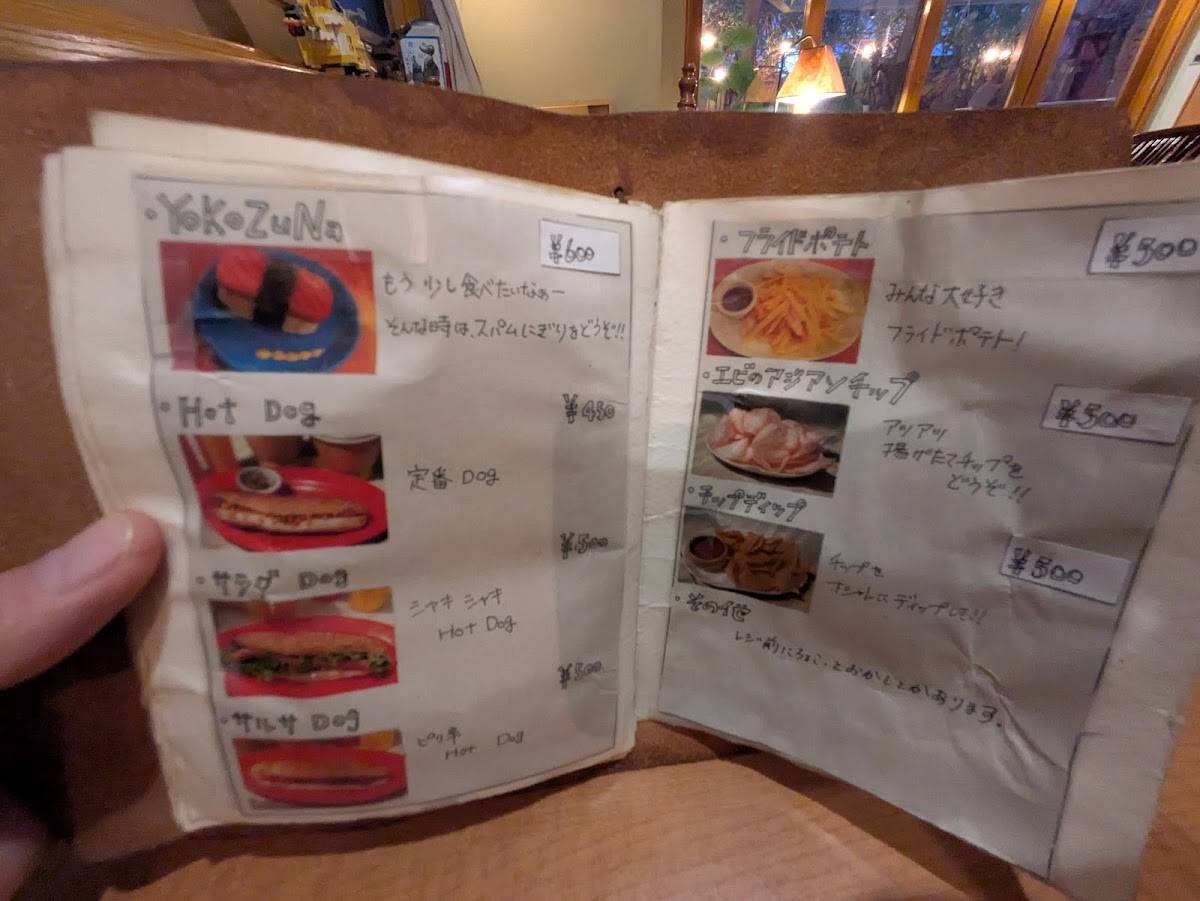 ・YoKoZuNa
¥600
もう少し食べたいなぁー
そんな時は、スパムにぎりをどうぞ!!
・Hot Dog
¥450
定番 Dog
・サラダ Dog
¥500
シャキシャキ
Hot Dog
・サルサ Dog
¥500
ピリ辛
Hot Dog
・フライドポテト
¥500
みんな大好き
フライドポテト!
・エビのアジアンチップ
¥500
アツアツ
揚げたてチップを
どうぞ!!
・チップディップ
¥500
チップを
オシャレにディップして!!
・その他
レジ前にちょこっとおかしとかあります。